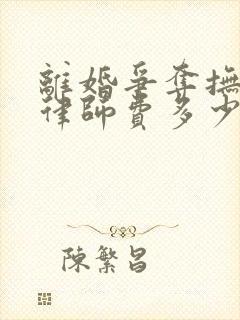 離婚爭奪撫
律師費多少
陳繁昌